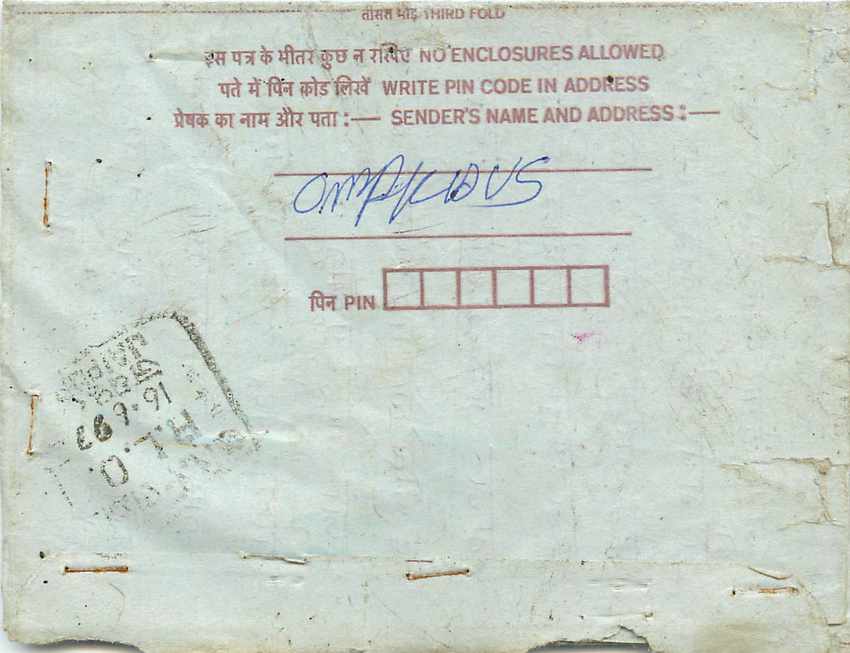 तीसरा मोड़ THIRD FOLD
इस पत्र के भीतर कुछ न रखिए NO ENCLOSURES ALLOWED
पते में पिन कोड लिखें WRITE PIN CODE IN ADDRESS
प्रेषक का नाम और पता :— SENDER'S NAME AND ADDRESS :—
पिन PIN